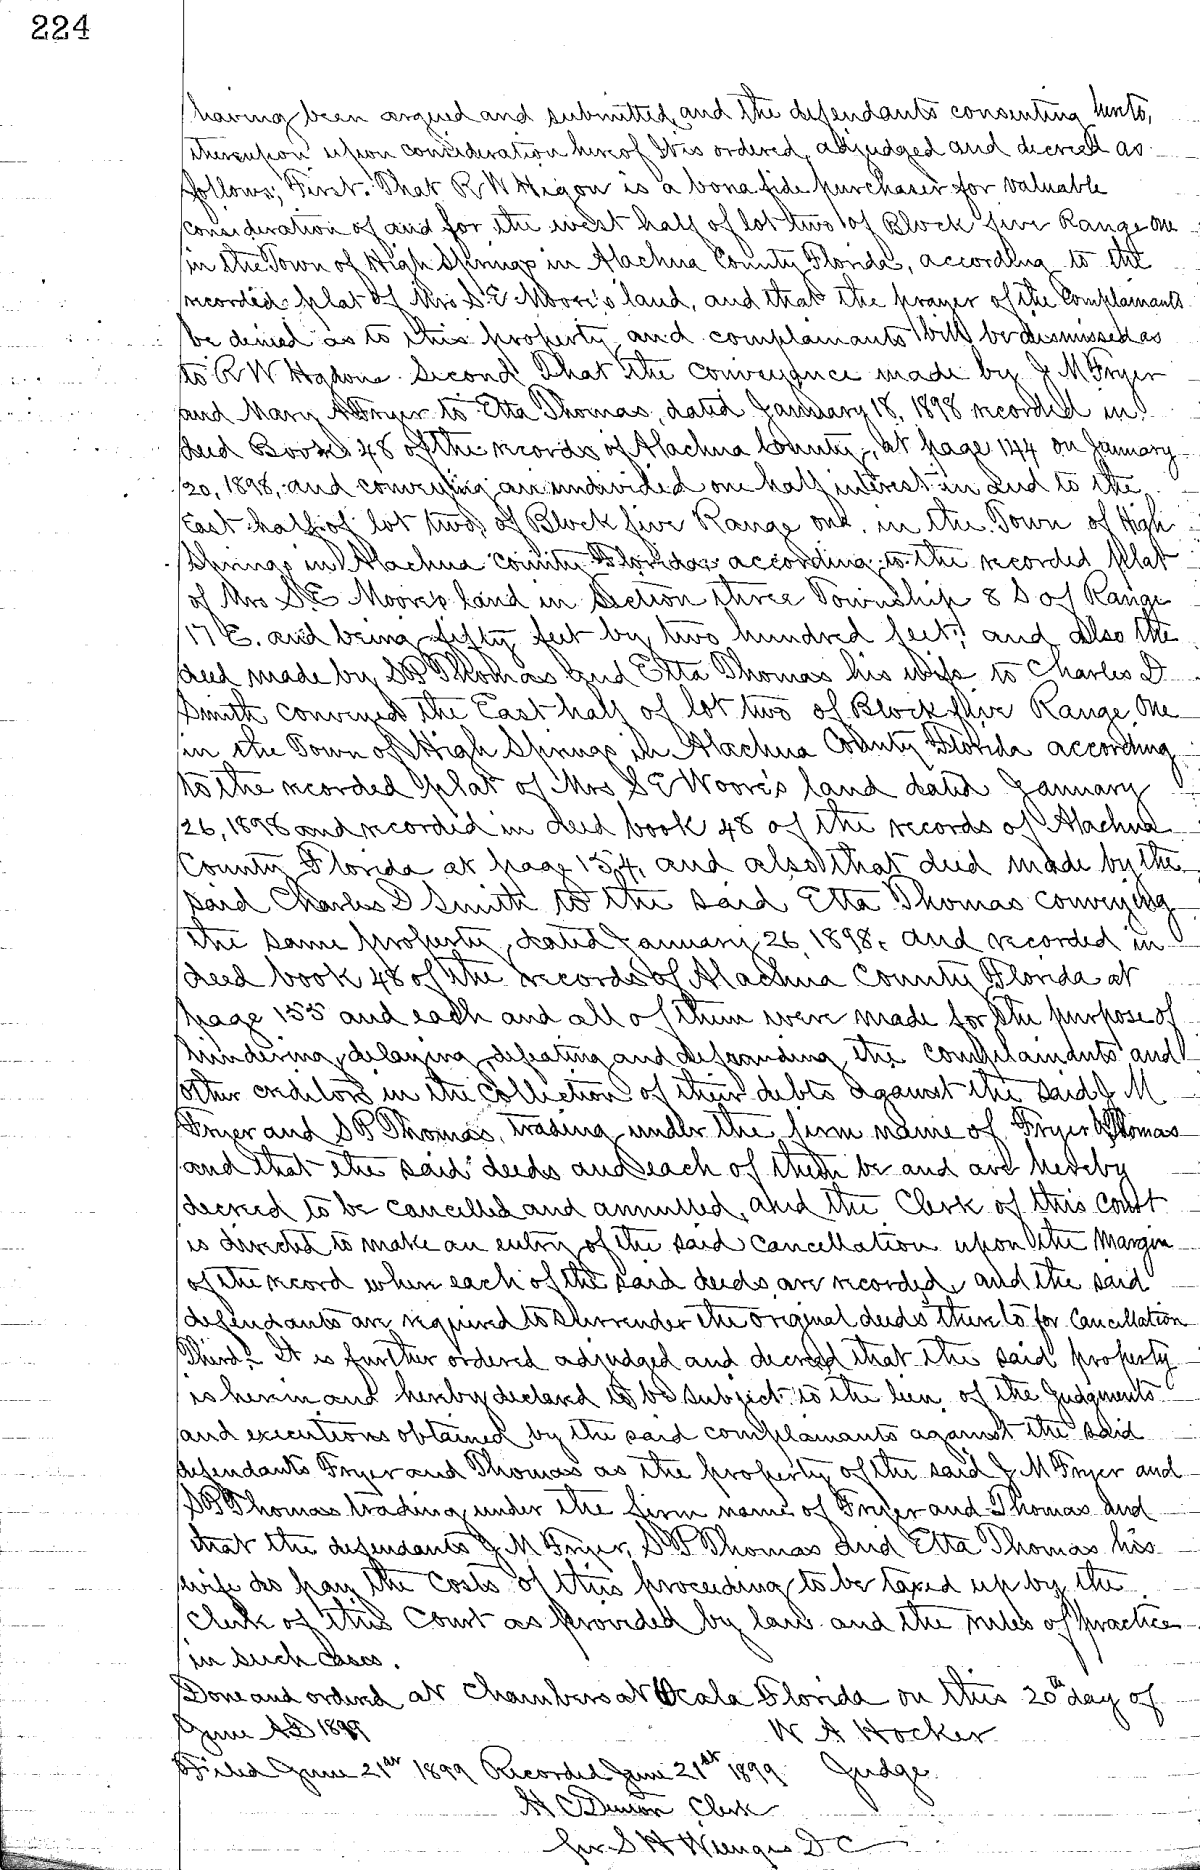 224
having been argued and submitted, and the defendants consenting hereto,
thereupon upon consideration hereof It is ordered, adjudged and decreed as
follows; First. That R W Higon is a bona fide purchaser for valuable
consideration of and for the west half of lot two of Block five Range One
in the Town of High Springs in Alachua County Florida, according to the
recorded plat of Mrs S E Moore's land, and that the prayer of the Complainants
be denied as to this property and complainants bill be dismissed as
to R W Second That the conveyance made by J M Fryer
and Mary A Fryer to Etta Thomas, dated January 18, 1898 recorded in
deed Book 48 of the records of Alachua County, at page 144 on January
20, 1898, and conveying an undivided one half interest in and to the
East half of lot two, of Block five Range one. in the Town of High
Springs in Alachua County Florida according to the recorded plat
of Mrs S.E Moore's land in Section three Township 8 S of Range
17 E. and being fifty feet by two hundred feet; and also the
deed made by S P Thomas and Etta Thomas his wife to Charles D
Smith conveyed the East half of lot two of Block five Range One
in the Town of High Springs in Alachua County Florida according
to the recorded plat of Mrs S E Moore's land dated January
26, 1898 and recorded in deed book 48 of the records of Alachua
County Florida at page 154, and also that deed made by the
said Charles D Smith to the said Etta Thomas conveying
the same property, dated January 26 1898. and recorded in
deed book 48 of the records of Alachua County Florida at
page 155 and each and all of them were made for the purpose of
hindering, delaying, defeating and defrauding the complainants and
other creditors in the collection of their debts against the said J M
Fryer and S P Thomas, trading under the firm name of Fryer & Thomas
and that the said deeds and each of them be and are hereby
decreed to be cancelled and annulled, and the Clerk of this Court
is directed to make an entry of the said cancellation upon the Margin
of the record where each of the said deeds are recorded, and the said
defendants are required to surrender the original deeds thereto for Cancellation
Third: It is further ordered adjudged and decreed that the said property
is herein and hereby declared to be subject to the lien of the Judgments
and executions obtained by the said complainants against the said
defendants Fryer and Thomas as the property of the said J M Fryer and
S P Thomas trading under the firm name of Fryer and Thomas and
that the defendants J M Fryer, S P Thomas and Etta Thomas his
wife do pay the costs of this proceeding to be taxed up by the
Clerk of this Court as provided by law and the rules of practice
in such cases.
Done and ordered at Chambers at Ocala Florida on this 20th day of
June AD 1899 W A Hocker
Filed June 21st 1899 Recorded June 21st 1899 Judge
H C Denton Clerk
per S H Wienges D C